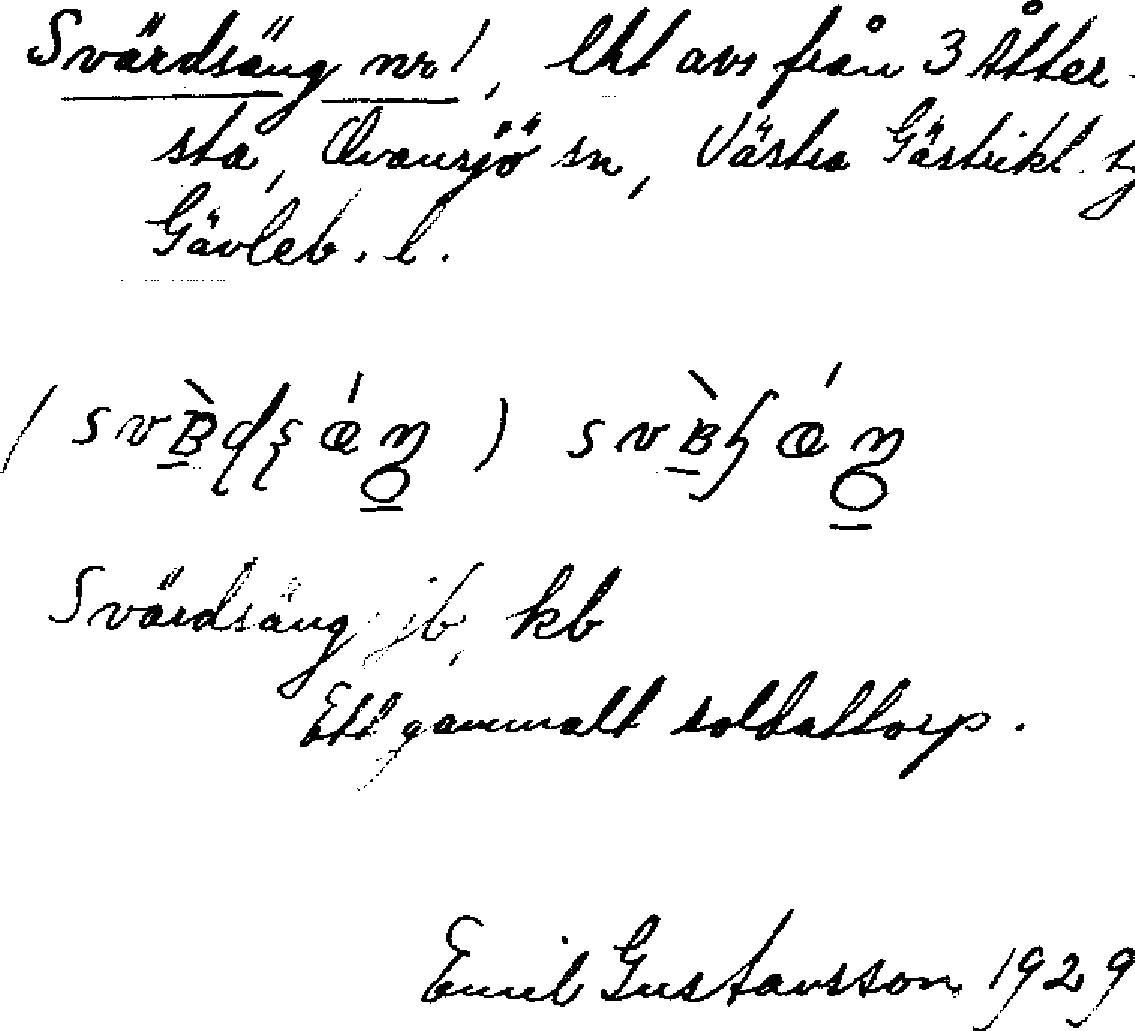 Svärdsäng nr 1, lht avs från 3 Åtter-
sta, Ovansjö sn, Västra Gästrikl. t
Gävleb. l.
Svärdsäng jb, kb
Ett gammalt soldattorp.
Emil Gustavsson 1929